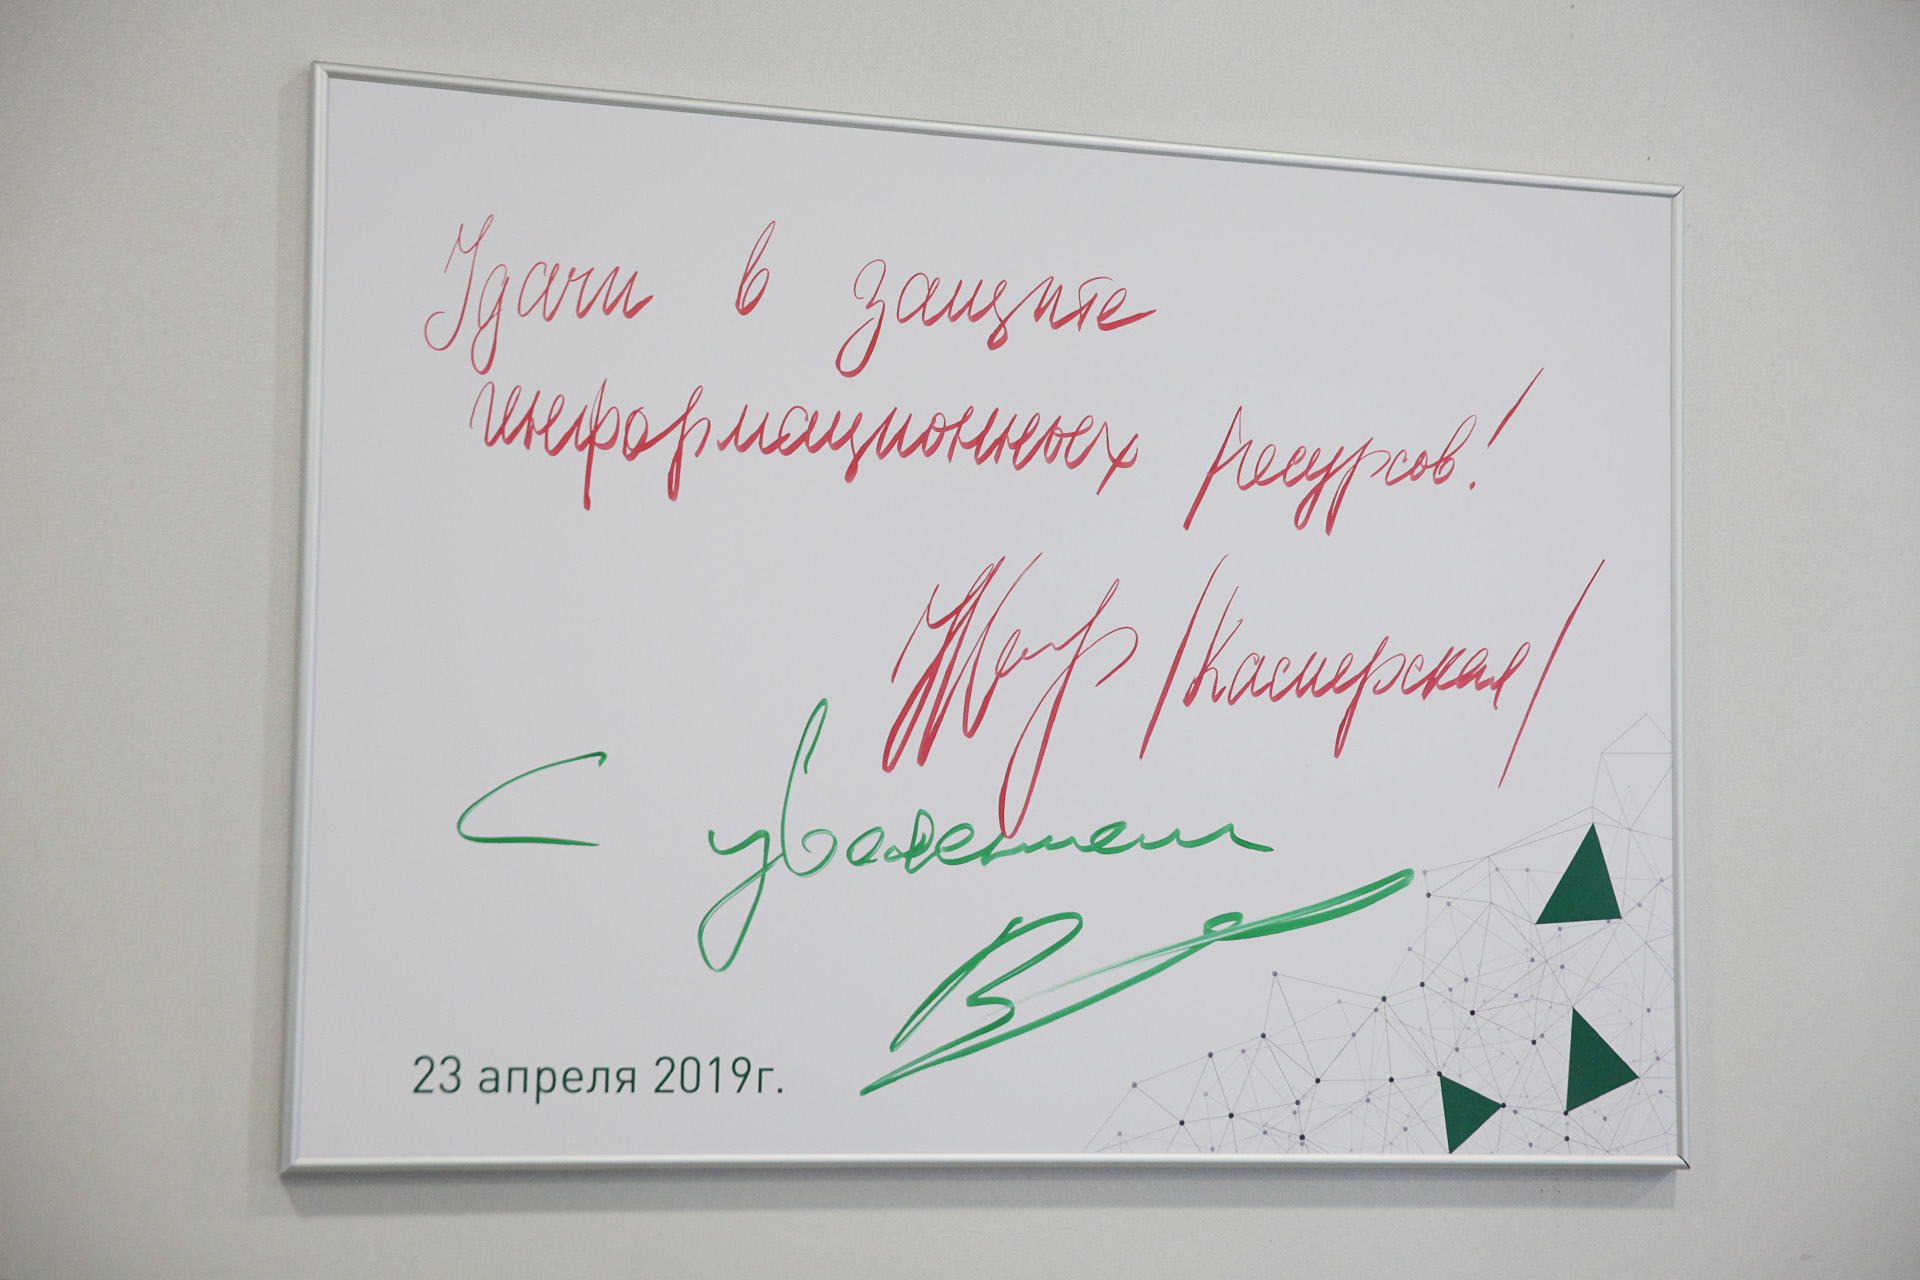 Удачи в защите
информационных ресурсов!
/Касперская/
С уважением
23 апреля 2019г.